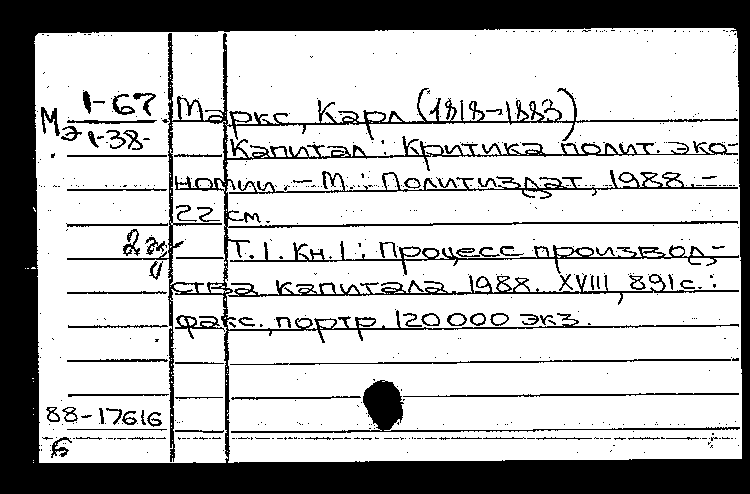 1-67 Маркс, Карл (1818-1883)
Мэ 1-38-
Капитал : Критика полит. эко-
номии. - М. : Политиздат, 1988. -
22 см.
2 эк
Т. 1. Кн. 1 : Процесс производ-
ства капитала. 1988. XVIII, 891 с. :
факс., портр. 120000 экз.
88-17616
б